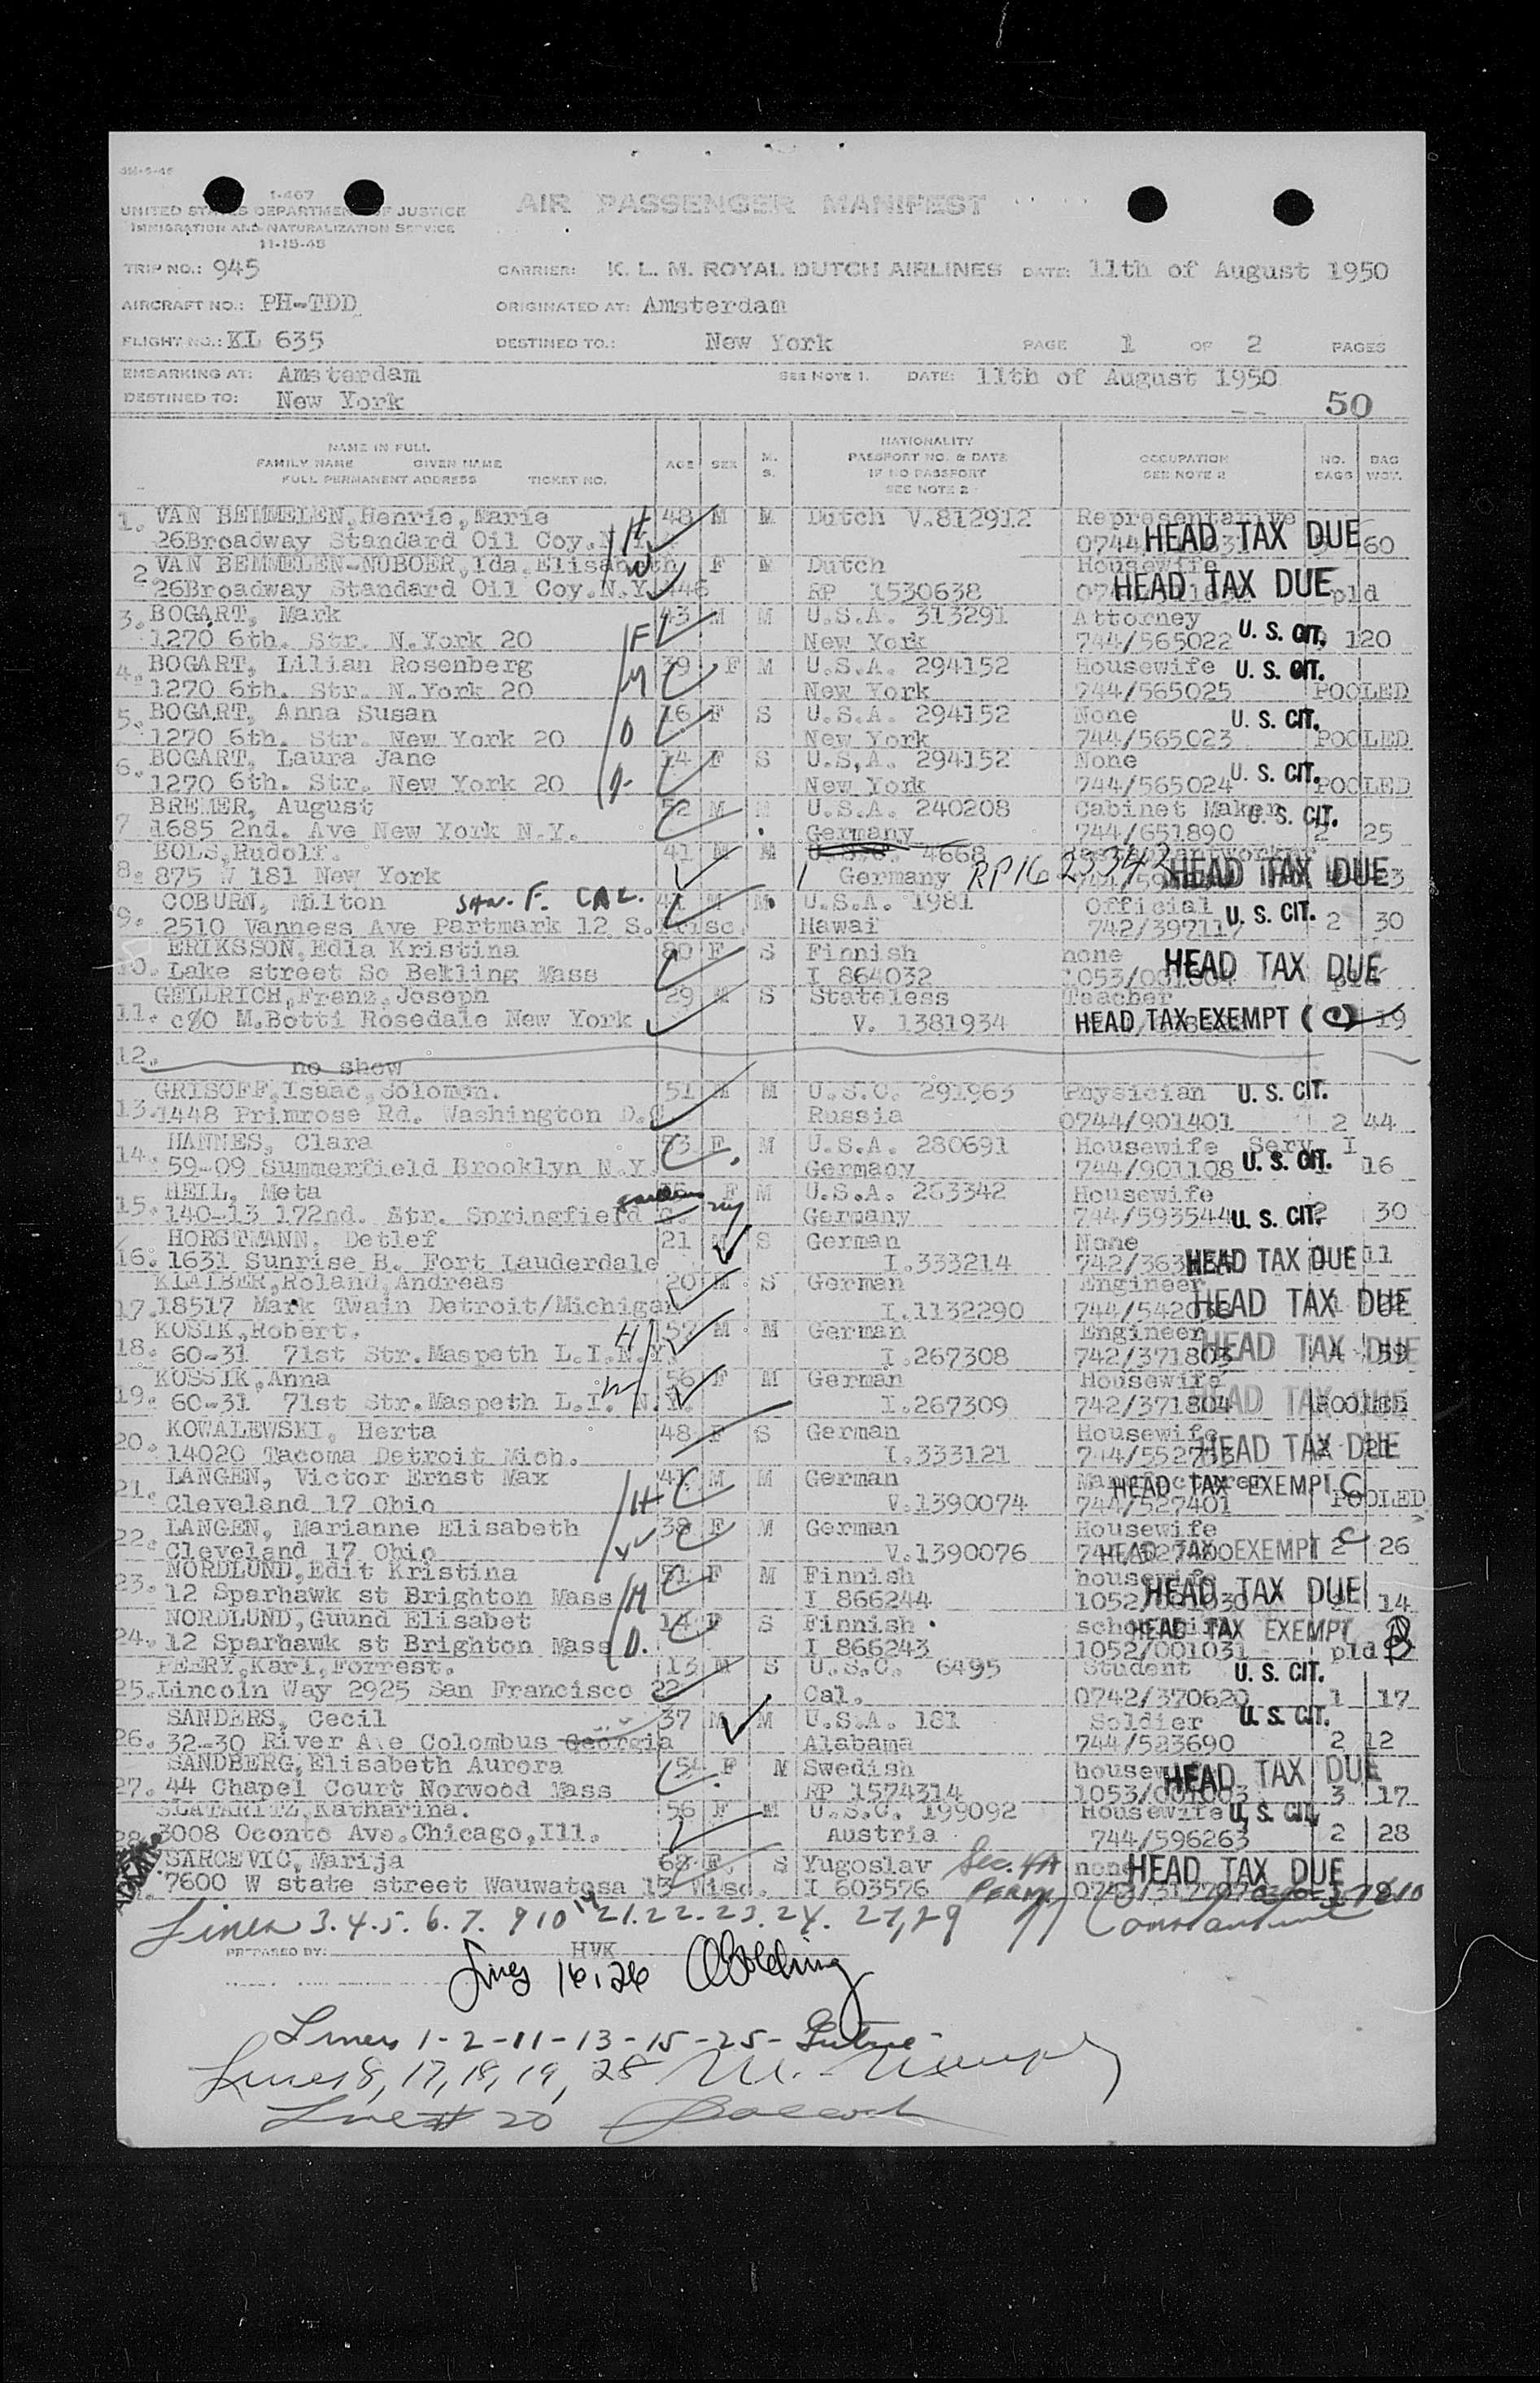 I-467
UNITED STATES DEPARTMENT OF JUSTICE
IMMIGRATION AND NATURALIZATION SERVICE
11-15-45
AIR PASSENGER MANIFEST
TRIP NO.: 945 CARRIER: K. L. M. ROYAL DUTCH AIRLINES DATE: 11th of August 1950
AIRCRAFT NO.: PH-TDD ORIGINATED AT: Amsterdam
FLIGHT NO.: KL 635 DESTINED TO.: New York PAGE 1 OF 2 PAGES
EMBARKING AT: Amsterdam SEE NOTE 1. DATE: 11th of August 1950
DESTINED TO: New York 50
NAME IN FULL
FAMILY NAME GIVEN NAME
FULL PERMANENT ADDRESS TICKET NO.
AGE SEX M. S.
NATIONALITY
PASSPORT NO. & DATE
IF NO PASSPORT
SEE NOTE 2
OCCUPATION
SEE NOTE 2
NO. BAGS
BAG WGT.
1. VAN BEMMELEN,Henrie,Marie 48 M M Dutch V.812912 Representative
26Broadway Standard Oil Coy.N.Y. H 0744 HEAD TAX DUE 60
2. VAN BEMMELEN-NUBOER,Ida,Elisabeth F M Dutch Housewife
26Broadway Standard Oil Coy.N.Y. W 46 RP 1530638 HEAD TAX DUE pld
3. BOGART, Mark 43 M M U.S.A. 313291 Attorney
1270 6th. Str. N.York 20 F New York 744/565022 U. S. CIT. 120
4. BOGART, Lilian Rosenberg 39 F M U.S.A. 294152 Housewife U. S. CIT.
1270 6th. Str. N.York 20 M New York 744/565025 POOLED
5. BOGART, Anna Susan 16 F S U.S.A. 294152 None U. S. CIT.
1270 6th. Str. New York 20 D New York 744/565023 POOLED
6. BOGART, Laura Jane 14 F S U.S,A. 294152 None
1270 6th. Str. New York 20 D New York 744/565024 U. S. CIT. POOLED
7. BREMER, August 52 M M U.S.A. 240208 Cabinet Maker U. S. CIT.
1685 2nd. Ave New York N.Y. Germany 744/651890 2 25
8. BOLS,Rudolf. 41 M M 4668
875 W 181 New York Germany RP1623342 HEAD TAX DUE
9. COBURN, Milton SAN. F. CAL. 41 M M U.S.A. 1981 Official
2510 Vanness Ave Partmark 12 S. Frisc. Hawai 742/397117 U. S. CIT. 2 30
10. ERIKSSON,Edla Kristina 80 F S Finnish none
Lake street So Bekling Mass I 864032 1053/001004 HEAD TAX DUE
11. GELLRICH,Franz,Joseph 29 M S Stateless Teacher
c/o M.Botti Rosedale New York V. 1381934 HEAD TAX EXEMPT (C) 19
12. no show
13. GRISOFF,Isaac,Solomon. 51 M M U.S.C. 291963 Physician U. S. CIT.
1448 Primrose Rd. Washington D.C. Russia 0744/901401 2 44
14. HANNES, Clara 53 F M U.S.A. 280691 Housewife Serv I
59-09 Summerfield Brooklyn N.Y. Germany 744/901108 U. S. CIT. 16
15. HEIL, Meta F M U.S.A. 263342 Housewife
140-13 172nd. Str. Springfield G. Gardens NY Germany 744/593544 U. S. CIT. 2 30
16. HORSTMANN, Detlef 21 M S German None
1631 Sunrise B. Fort Lauderdale I.333214 742/363 HEAD TAX DUE 11
17. KLAIBER,Roland,Andreas 20 M S German Engineer
18517 Mark Twain Detroit/Michigan I.1132290 744/542036 HEAD TAX DUE
18. KOSIK,Robert. 57 M M German Engineer
60-31 71st Str.Maspeth L.I.N.Y. H I.267308 742/371803 HEAD TAX DUE
19. KOSSIK,Anna 56 F M German Housewife
60-31 71st Str.Maspeth L.I. N.Y. W I.267309 742/371804 HEAD TAX DUE POOLED
20. KOWALEWSKI, Herta 48 F S German Housewife
14020 Tacoma Detroit Mich. I.333121 744/552733 HEAD TAX DUE
21. LANGEN, Victor Ernst Max 41 M M German Manufacturer
Cleveland 17 Ohio H V.1390074 744/527401 HEAD TAX EXEMPT C POOLED
22. LANGEN, Marianne Elisabeth 38 F M German Housewife
Cleveland 17 Ohio W V.1390076 744/527400 HEAD TAX EXEMPT C 2 26
23. NORDLUND,Edit Kristina 51 F M Finnish housewife
12 Sparhawk st Brighton Mass M I 866244 1052/001030 HEAD TAX DUE 14
24. NORDLUND,Guund Elisabet 14 F S Finnish school girl HEAD TAX EXEMPT
12 Sparhawk st Brighton Mass D. I 866243 1052/001031 pld B
25. PEERY,Karl,Forrest. 13 M S U.S.C. 6495 Student U. S. CIT.
Lincoln Way 2925 San Francisco 22 Cal. 0742/370620 1 17
26. SANDERS, Cecil 37 M M U.S.A. 181 Soldier U. S. CIT.
32-30 River Ave Colombus Georgia Alabama 744/523690 2 12
27. SANDBERG,Elisabeth Aurora 54 F M Swedish housewife
44 Chapel Court Norwood Mass RP 1574314 1053/001003 HEAD TAX DUE 3 17
28. SLATARITZ,Katharina. 56 F M U.S.C. 199092 Housewife U. S. CIT.
3008 Oconto Ave.Chicago,Ill. Austria 744/596263 2 28
SARCEVIC,Marija 63 F. S Yugoslav Sec. 4A none HEAD TAX DUE
7600 W state street Wauwatosa 13 Wisc. I 603576 PERM.
Lines 3.4.5. 6. 7. 9 10 14 21.22.23.24. 27,29 Constantine
PREPARED BY: HVK
Lines 16,26
Lines 1-2-11-13-15-25-
Lines 8, 17, 18, 19, 28
Line # 20